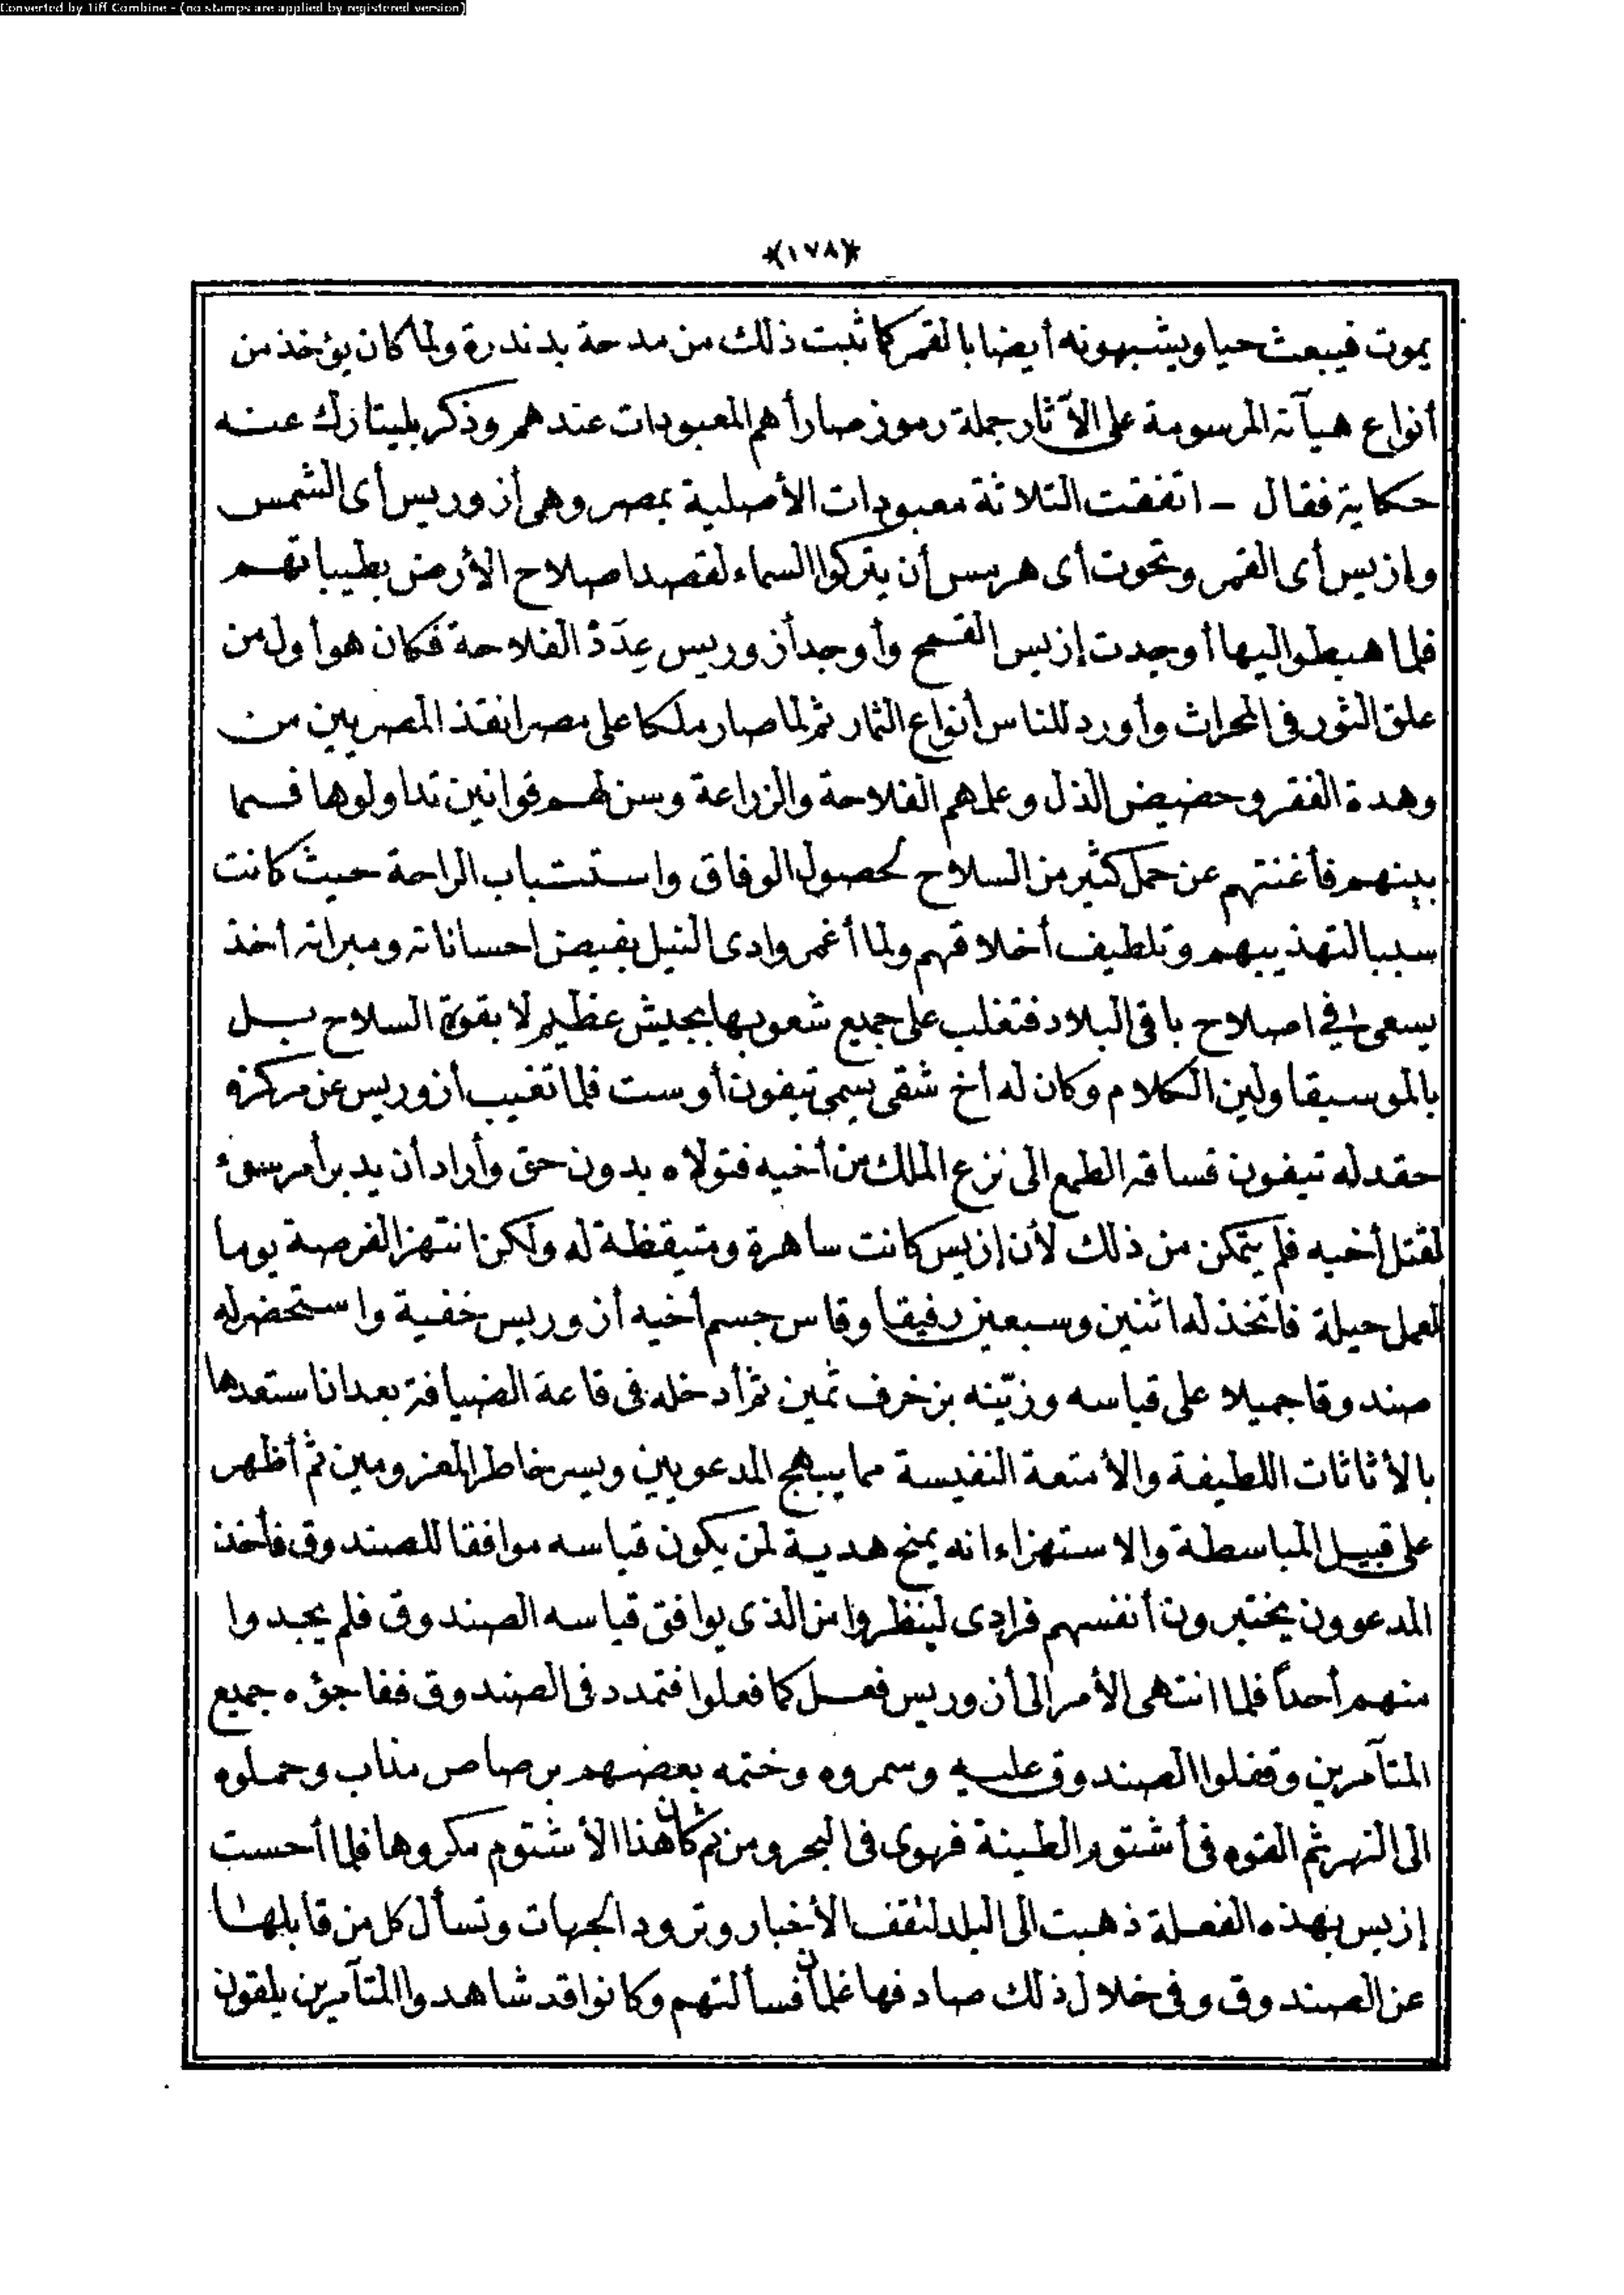 Converted by Tiff Combine - (no stamps are applied by registered version)
﴿١٧٨﴾
يموت فيبعث حيا ويشبهونه أيضا بالقمر كما ثبت ذلك من مدحة بدندرة ولما كان يؤخذ من
أنواع هيآته المرسومة على الآثار جملة رموز صار أهم المعبودات عندهم وذكر بليتارك عنه
حكاية فقال - اتفقت الثلاثة معبودات الأصلية بمصر وهى أزوريس أى الشمس
وإزيس أى القمر وتحوت أى هرمس أن يتركوا السماء لقصد اصلاح الأرض بطيباتهم
فلما هبطوا اليها أوجدت إزيس القمح وأوجد أزوريس عِدَدَ الفلاحة فكان هو أول من
علق الثور فى المحراث وأورد للناس أنواع الثمار ثم لما صار ملكا على مصر انقذ المصريين من
وهدة الفقر وحضيض الذل وعلمهم الفلاحة والزراعة وسن لهم قوانين تداولوها فيما
بينهم فأغنتهم عن حمل كثير من السلاح لحصول الوفاق واستتباب الراحة حيث كانت
سببا لتهذيبهم وتلطيف أخلاقهم ولما أغمر وادى النيل بفيض احساناته ومبراته أخذ
يسعى فى اصلاح باقى البلاد فتغلب على جميع شعوبها بجيش عظيم لا بقوة السلاح بل
بالموسيقا ولين الكلام وكان له أخ شقى يسمى تيفون أوست فلما تغيب أزوريس عن مركزه
حقد له تيفون فساقه الطمع الى نزع الملك من أخيه فتولاه بدون حق وأراد أن يدبر أمر سوء
لقتل أخيه فلم يتمكن من ذلك لأن إزيس كانت ساهرة ومتيقظة له ولكن انتهز الفرصة يوما
لعمل حيلة فاتخذ له اثنين وسبعين رفيقا وقاس جسم أخيه أزوريس خفية واستحضر له
صندوقا جميلا على قياسه وزيّنه بزخرف ثمين ثم أدخله فى قاعة الضيافة بعد ان استعدها
بالأثاثات اللطيفة والأمتعة النفيسة مما يبهج المدعويين ويسر خاطر المعزومين ثم أظهر
على قبيل المباسطة والاستهزاء انه يمنح هدية لمن يكون قياسه موافقا للصندوق فأخذ
المدعوون يختبرون أنفسهم فرادى لينظروا من الذى يوافق قياسه الصندوق فلم يجدوا
منهم أحداً فلما انتهى الأمر الى أزوريس فعل كما فعلوا فتمدد فى الصندوق ففاجؤه جميع
المتآمرين وقفلوا الصندوق عليه وسمروه وختمه بعضهم برصاص مذاب وحملوه
الى النهر ثم القوه فى أشتوم الطينة فهوى فى البحر ومن ثم كان هذا الأشتوم مكروها فلما أحست
إزيس بهذه الفعلة ذهبت الى البلد لتقف الأخبار وترود الجهات وتسأل كل من قابلها
عن الصندوق وفى خلال ذلك صادفها غلمان فسألتهم وكانوا قد شاهدوا المتآمرين يلقون